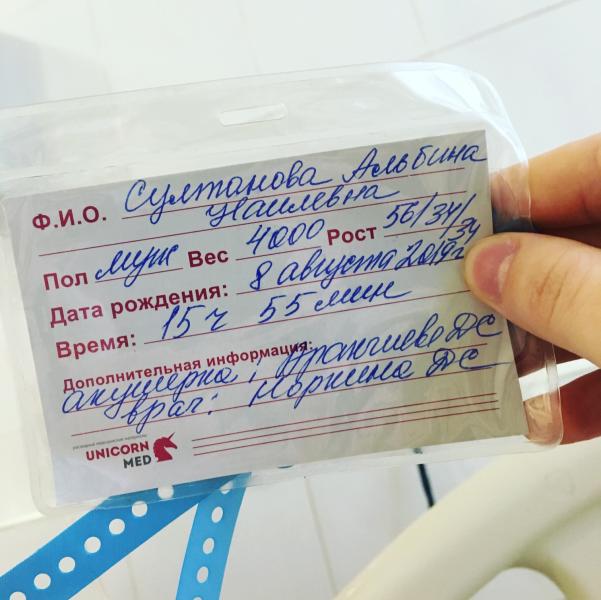 Ф.И.О. Султанова Альбина
Наилевна
Пол муж Вес 4000 Рост 56/34/
34
Дата рождения: 8 августа 2019г
Время: 15ч 55 мин
Дополнительная информация:
акушерка: ДС
врач: Норкина ДС
UNICORN
MED